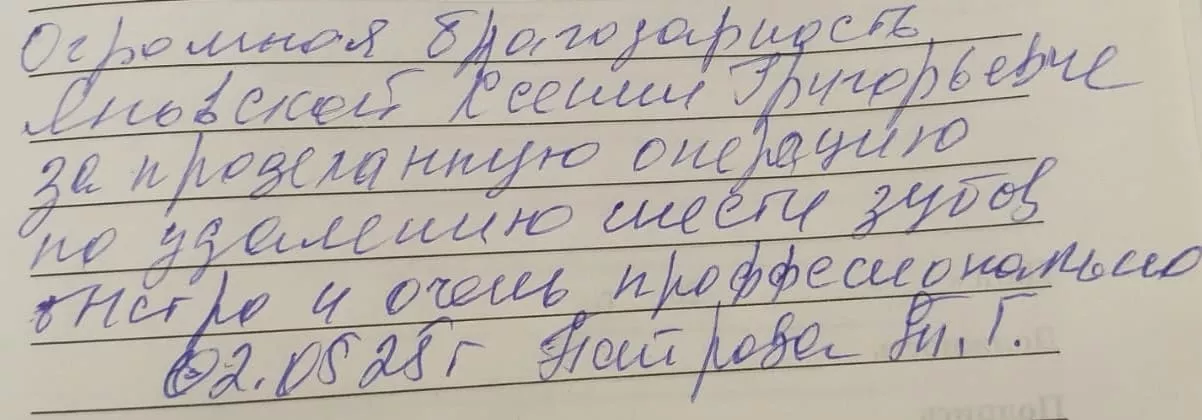 Огромная благодарность
Яновской Ксении Григорьевне
за проделанную операцию
по удалению шести зубов
быстро и очень проффесионально
02.05 25г Таирова Т.Г.